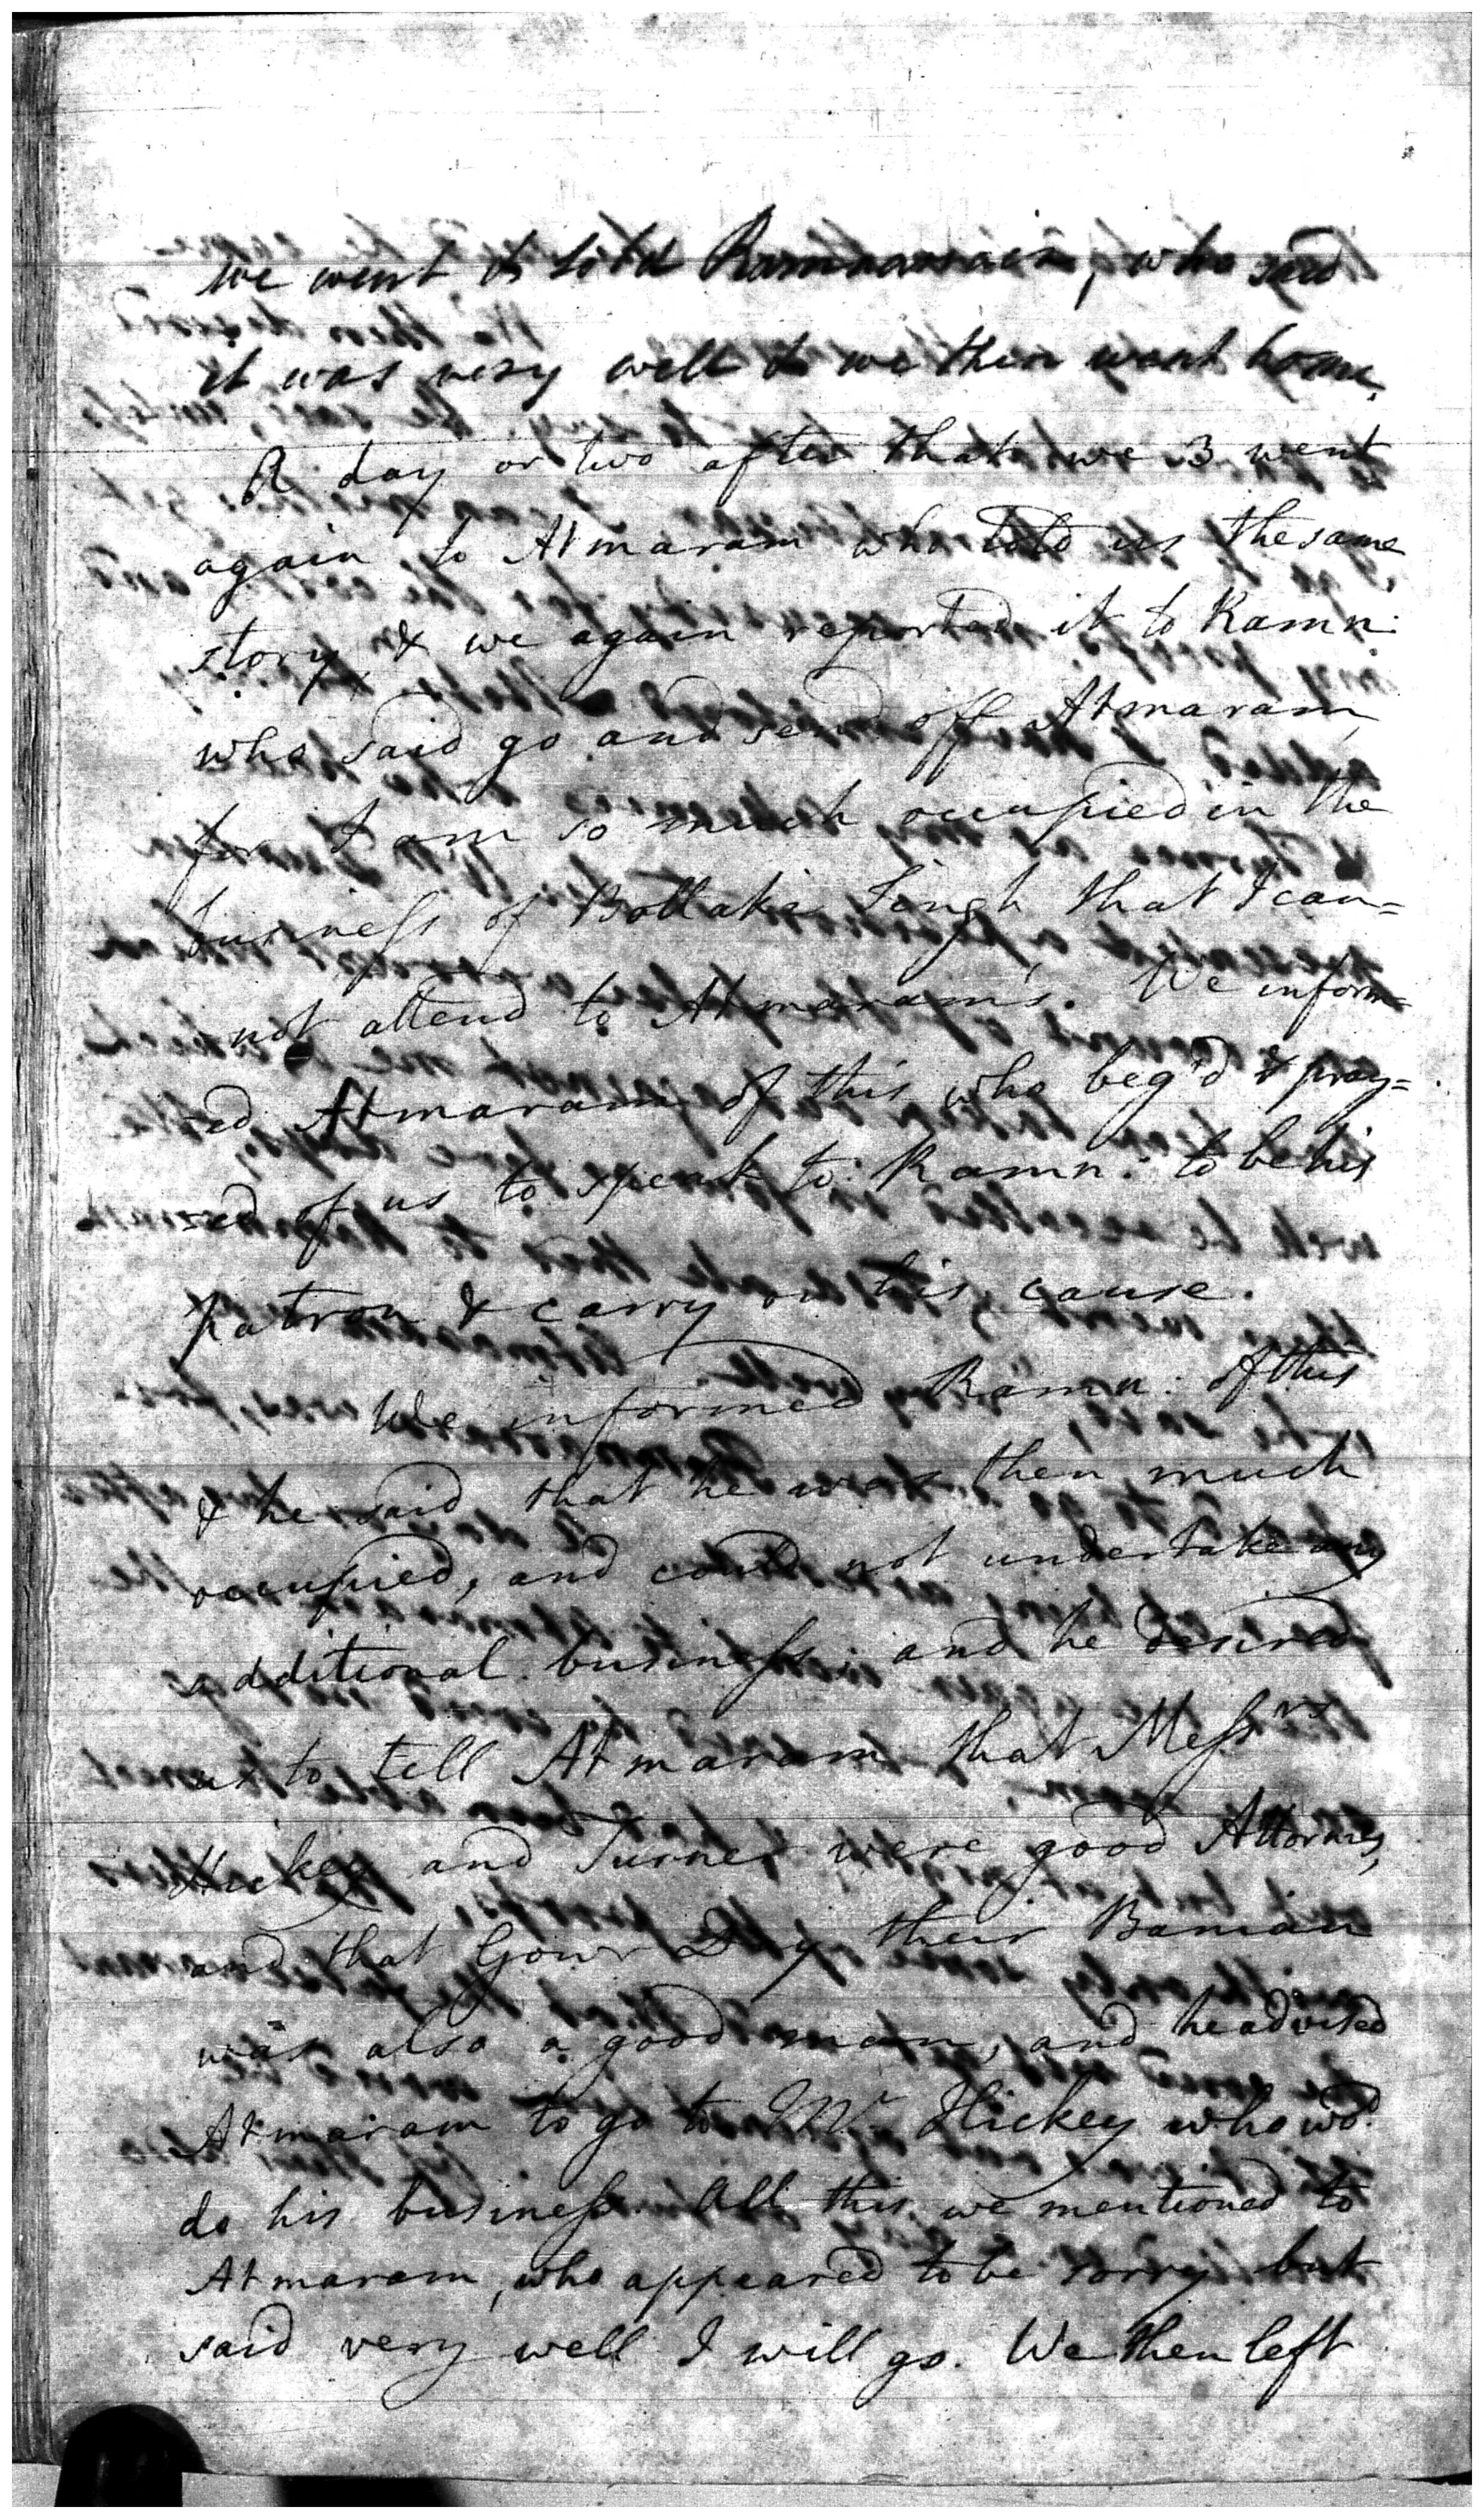 we went & told Ramnarrain, who said
it was very well & we then went home.
A day or two after that we 3 went
again to Atmaram who told us the same
story, & we again reported it to Ramn:
who said go and send off Atmaram,
for I am so much occupied in the
business of Bollakie Singh that I can=
not attend to Atmaram's. We inform=
=ed Atmaram of this who beg'd & pray=
=ed of us to speak to Ramn: to be his
patron & carry on his cause.
We informed Ramn: of this
& he said that he was then much
occupied, and could not undertake any
additional business, and he desired
us to tell Atmaram that Messrs
Hickey and Turner were good Attornies,
and that Gowr Dey their Banian
was also a good man, and he advised
Atmaram to go to Mr Hickey who wod.
do his business. All this we mentioned to
Atmaram, who appeared to be sorry but
said very well I will go. We then left